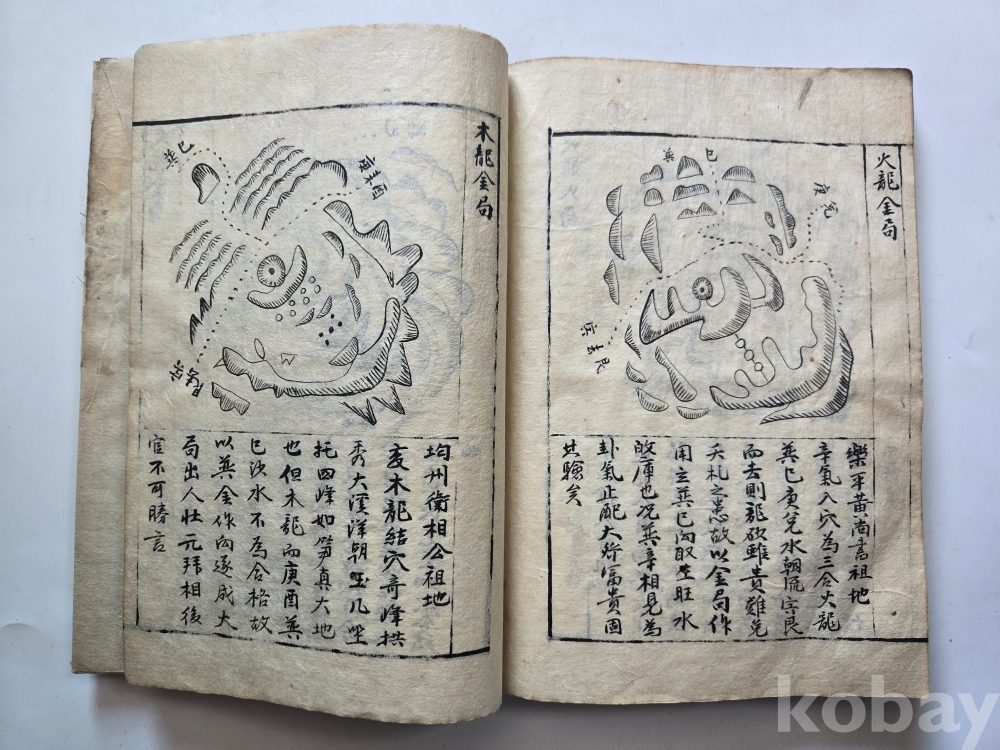 火龍金局
巽
巳
庚兌
艮
樂平黃尚書祖地
辛氣入穴為三合火龍
巽巳庚兌水朝流宗艮
而去則龍砍雖貴難免
夭札之患故以金局作
用立巽巳向取生旺水
故庫也况巽辛相見為
卦氣正配大
富貴固
其驗矣
木龍金局
巽巳
均州衛相公祖地
亥木龍結穴奇峰拱
秀大溪洋朝
几
托四峰如笋真大地
也但木龍而庚酉巽
巳沙水不為合格故
以巽金作向遂成大
局出人壮元拜相後
官不可勝言
kobay